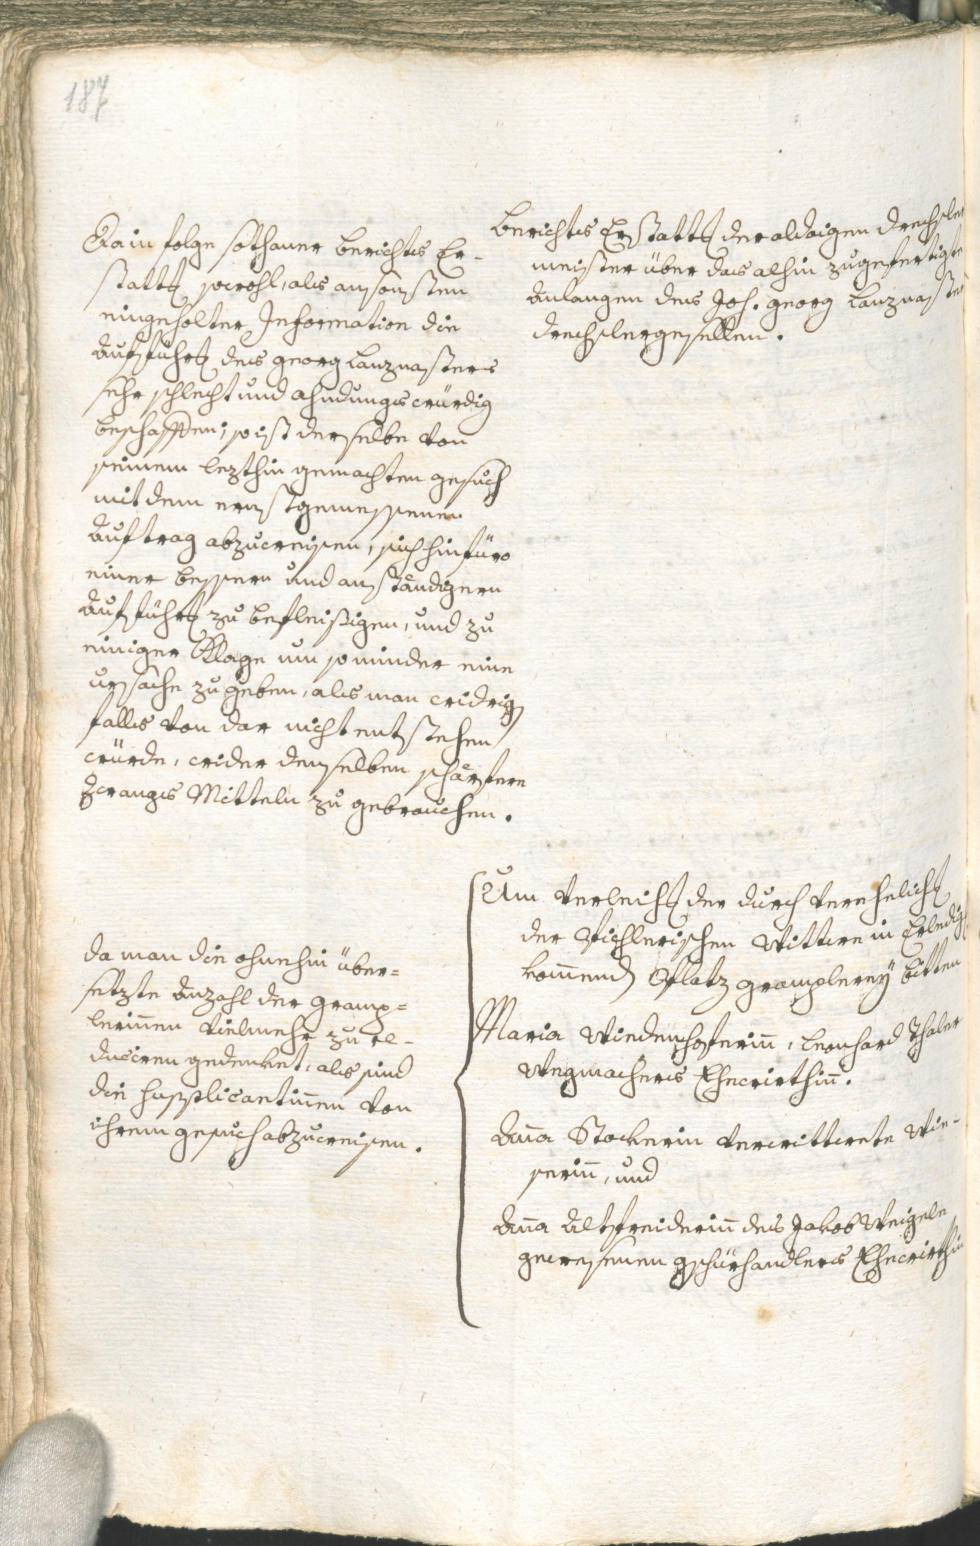 187
Da in folge sothaner berichts Er-
stattg sowohl, als ansonsten
eingeholter Information die
Aufführg des georg Lanznasters
sehr schlecht und ahndungswürdig
beschaffen; so ist derselbe von
seinem lezthin gemachten gesuch
mit dem ernstgemessenen
Auftrag abzuweisen, sich hinfüro
einer bessern und anständigern
Aufführg zu befleißigen, und zu
einiger Klage um so minder eine
ursache zu geben, als man widrig
falls von dar nicht entstehen
würde, wider denselben schärfere
Zwangs Mitteln zu gebrauchen.
Berichts Erstattg der aldaigen Drechsler
meister über das alhin zugefertigte
Anlangen des Joh. georg Lanznaster
drechslergesellen.
da man die ohnehin über=
setzte Anzahl der gramp=
lerinnen vielmehr zu re-
duciren gedenket, als sind
die supplicantinnen von
ihrem gesuch abzuweisen.
Um verleihg der durch verehelichg
der Pichlerischen Wittwe in Erledig
kommend Platz gramplerey bitten
Maria Wiedenhoferin, Leonhard Thaler
Wegmachers Ehewirthin.
Anna Stockerin verwittwete Wie-
serin, und
Anna Altschneiderin des Jakob Weigele
gewesenen gschürhandlers Ehewirthin